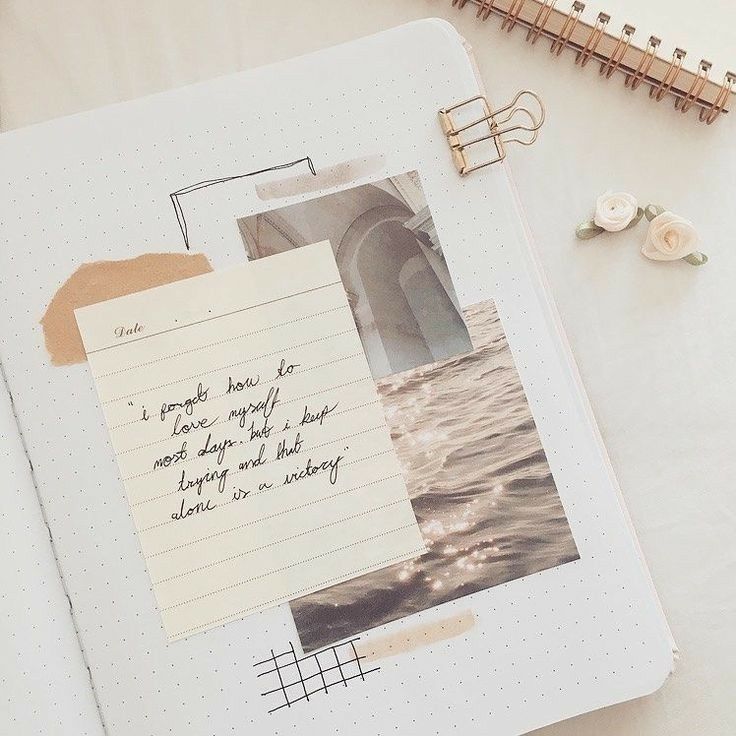 Date
"i forget how to
love myself
most days. but i keep
trying and that
alone is a victory."